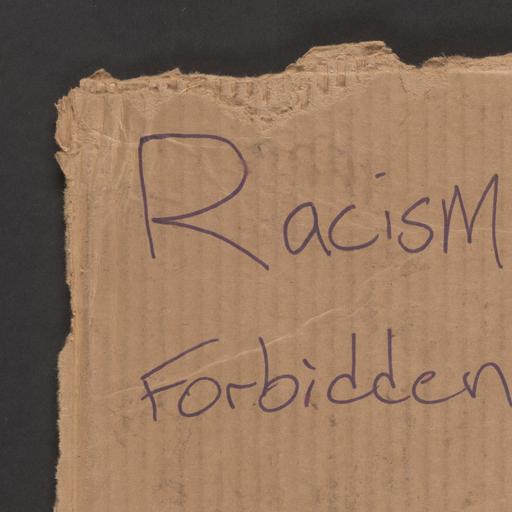 RacisM
Forbidden